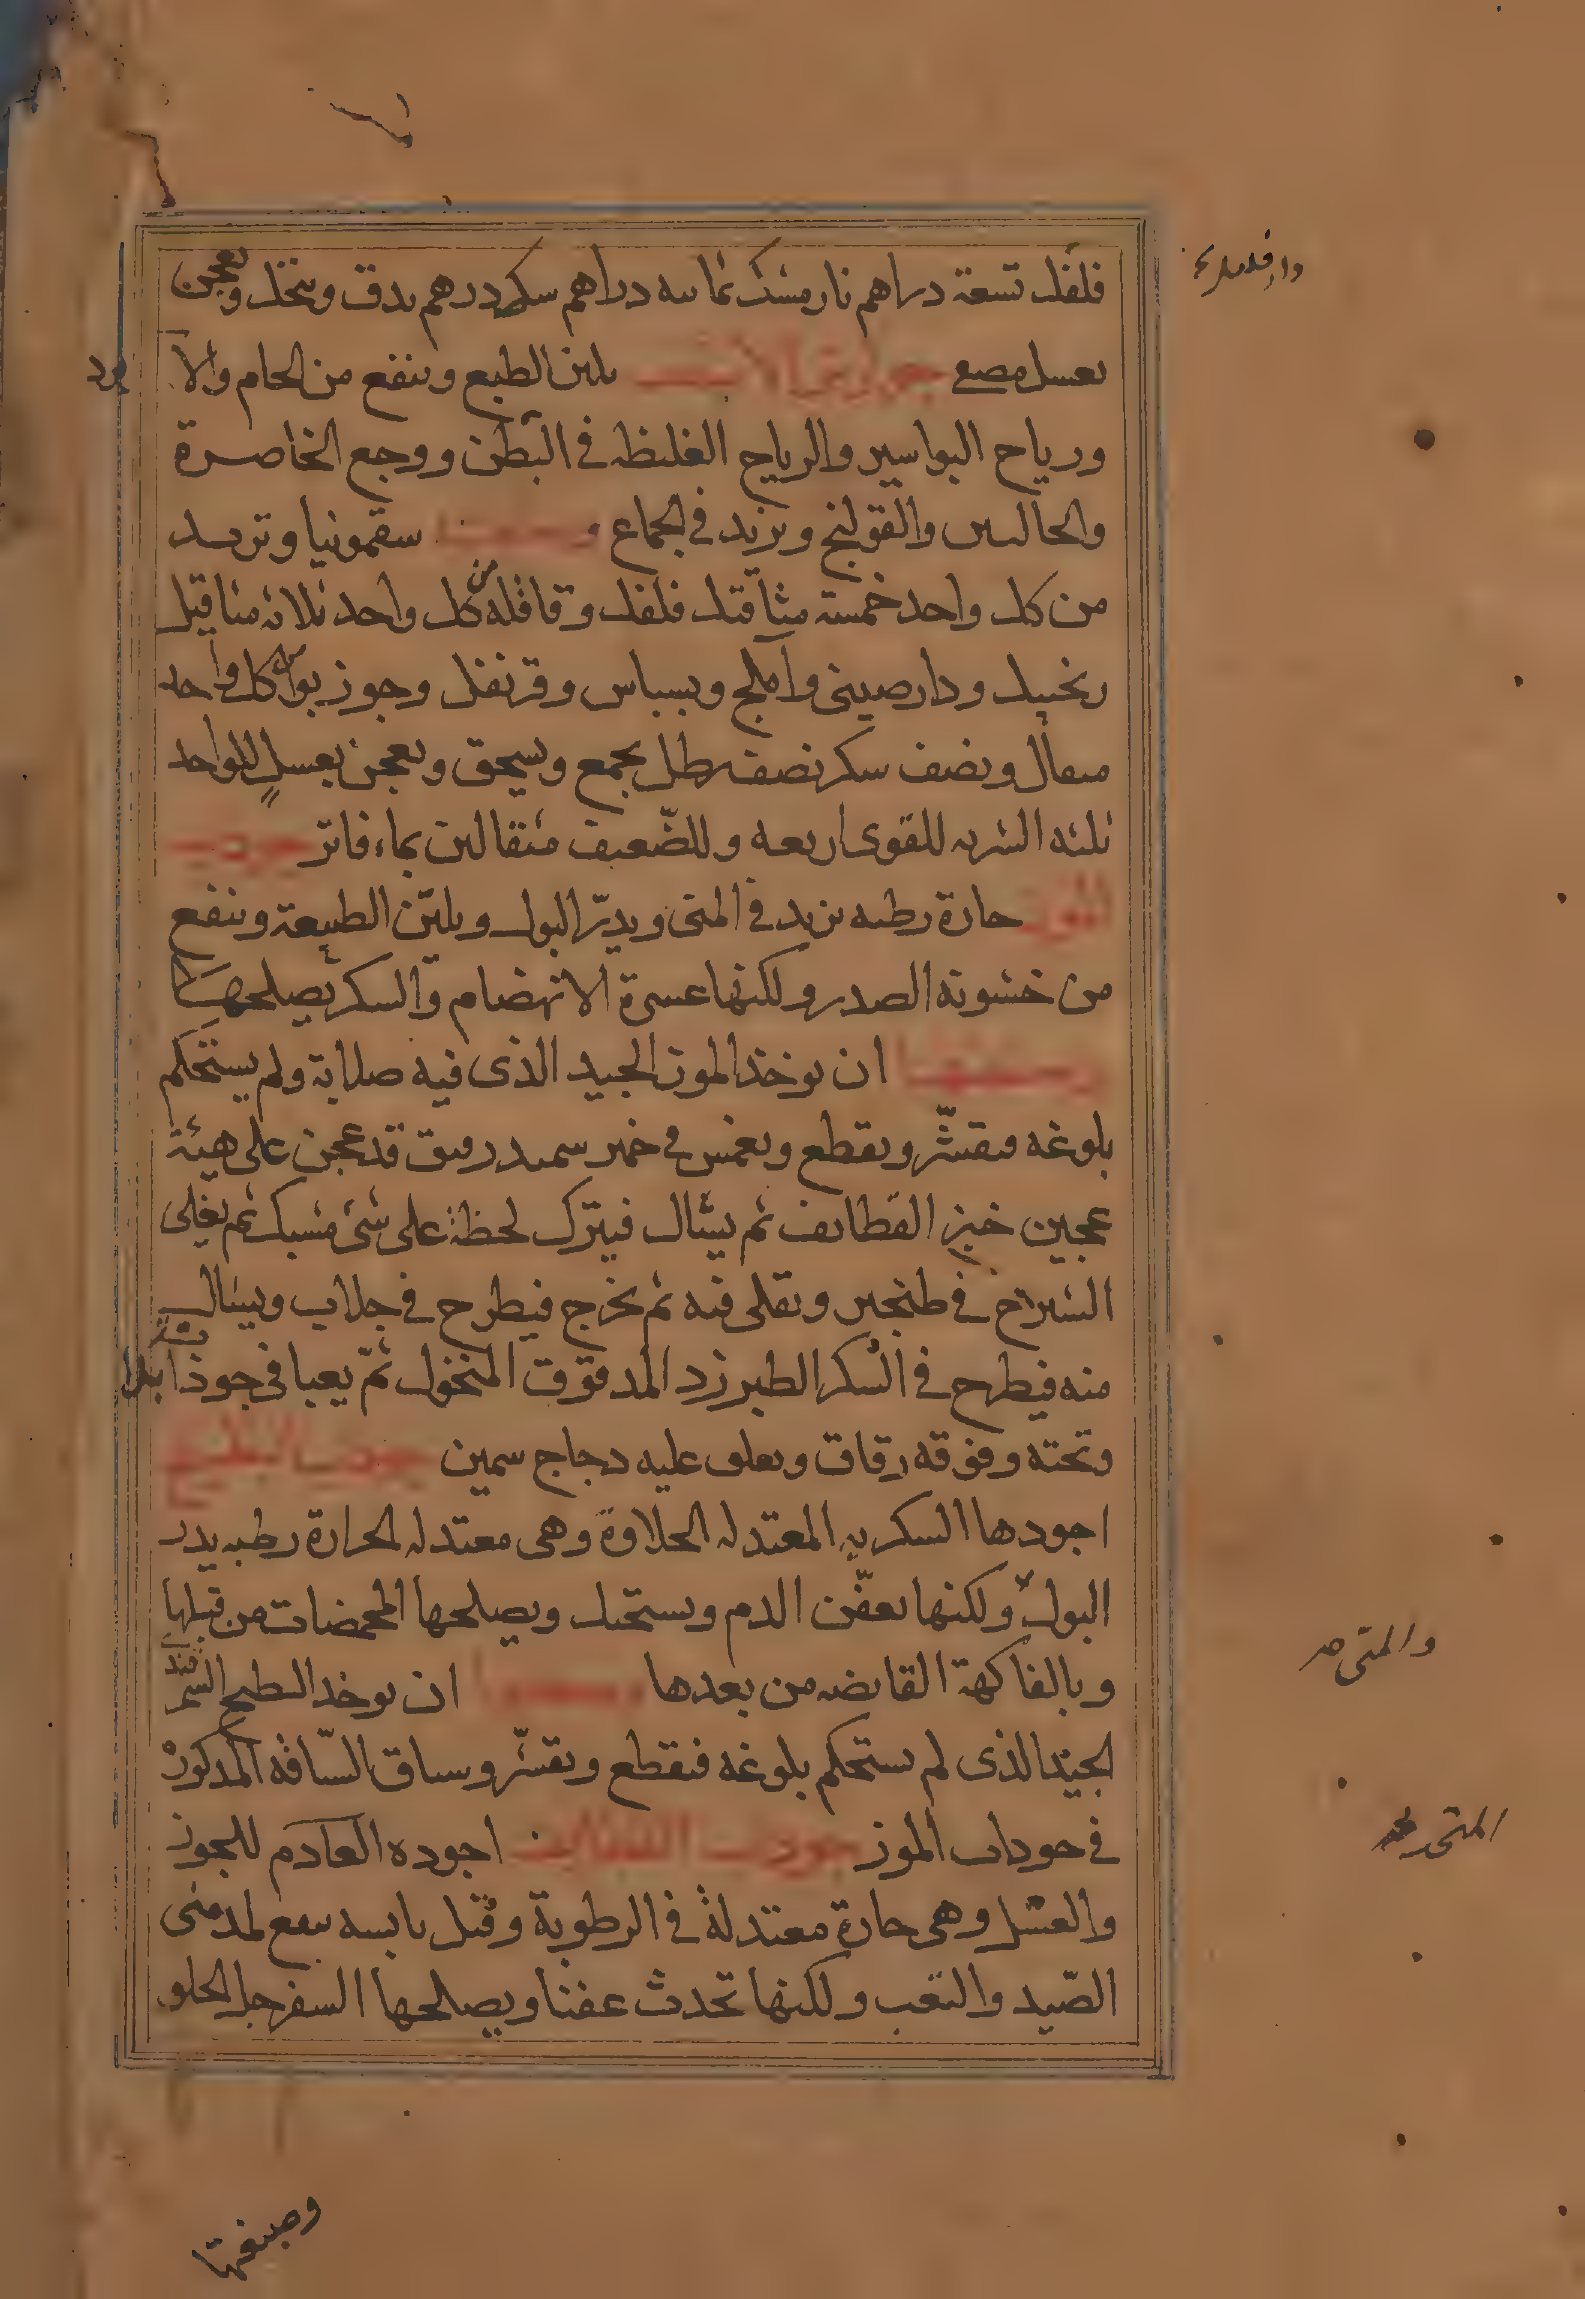 فلفل تسعة دراهم نارمشك ثمانيه دراهم سكر درهم يدق وينخل ويعجن
بعسل مصفى جوارش الا يلين الطبع وينفع من الخام والابرد
ورياح البواسير والرياح الغليظه في البطن ووجع الخاصرة
والحالبين والقولنج ويزيد في الجماع وصفته سقمونيا وتربد
من كل واحد خمسة مثاقيل فلفل وقاقله من كل واحد ثلاثه مثاقيل
زنجبيل ودارصيني واملج وبسباس وقرنفل وجوز بوا من كل واحد
مثقال ونصف سكر نصف رطل يجمع ويسحق ويعجن بعسل للواحد
ثلثه الشربه للقوى اربعه وللضعيف مثقالين بماء فاتر جوذاب
الموز حارة رطبه يزيد في المنى ويدرّ البول ويليّن الطبيعة وينفع
من خشونه الصدر ولكنها عسرة الانهضام والسكر يصلحها
وصفتها ان يوخذ الموز الجيد الذى فيه صلابة ولم يستحكم
بلوغه فيقشّر ويقطع ويغمس في خمير سميد رقيق قد عجن على هيئة
عجين خبز القطايف ثم يشال فيترك لحظة على شئ مشبك ثم يغلى
الشيرج في طنجير ويقلى فيه ثم يخرج فيطرح في جلاب ويشال
منه فيطرح في السكر الطبرزد المدقوق المنخول ثمّ يعبا في جوذابه
وتحته وفوقه رقاق ويعلق عليه دجاج سمين جوذاب البطيخ
اجودها السكريه المعتدله الحلاوة وهى معتدله الحرارة رطبه يدر
البول ولكنها يعفّن الدم ويستحيل ويصلحها المحمضات من قبلها
وبالفاكهة القابضه من بعدها وصفتها ان يوخذ البطيخ السمرقندى
الجيد الذى لم يستحكم بلوغه فيقطع ويقشّر ويساق السّاقه المذكورة
في جوذاب الموز جوذاب القطايف اجوده العادم للجوز
والعسل وهى حارة معتدلة في الرطوبة وقيل يابسه ينفع لمدمنى
الصّيد والتعب ولكنها تحدث عفنا ويصلحها السفرجل الحلو
وصفتها